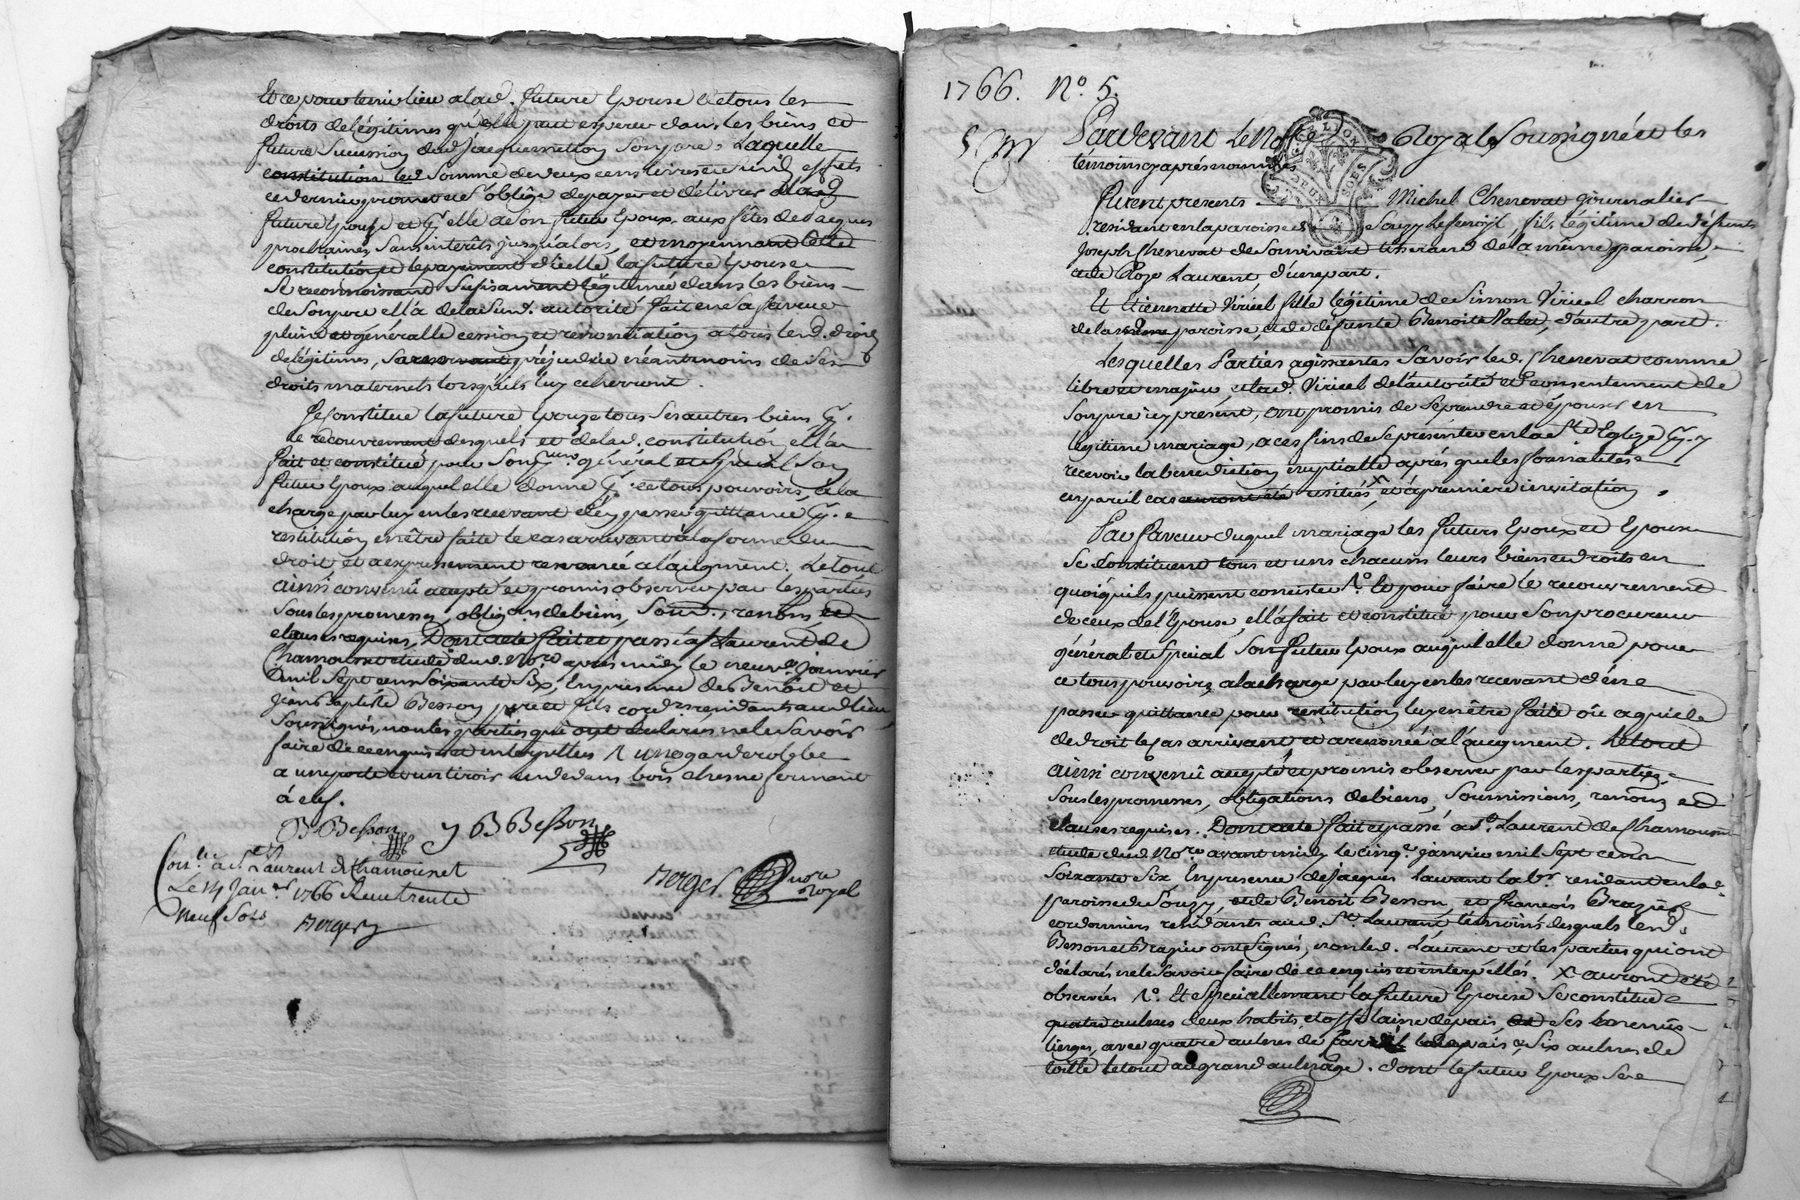 Et ce pour tenir lieu à lad. future Epouse de tous les
droits de légitimes qu'elle peut esperer dans les biens et
future Succession dud. Jacques son pere, Laquelle
constitution led. Somme de deux cens livres
ce dernier promet et s'oblige de payer et délivrer à lad.
future Epouse et à son futur Epoux aux fêtes de Paques
prochaines, Sans interêts jusqu'alors, et moyennant cette
constitution et le payement d'icelle la future Epouse
Se reconnoissant Sufisament légitimée dans les biens
de Son pere ell'a de la Sud. autorité fait en sa faveur
pleine et générale cession et renonciation à tous led. droits
de légitimes, Sans préjudice néantmoins de Ses
droits maternels lorsqu'ils luy echerront.
Se constitue la future Epouze tous Ses autres biens
le recouvrement desquels et de lad. constitution ell'a
fait et constitué pour Son général et Spécial Son
futur Epoux auquel elle donne ce tous pouvoirs, à la
charge par luy en les recevant d'en passer quittance
restitution en être faite le cas arrivant à la forme du
droit et a expressement renoncé à l'augment. Le tout
ainsi convenû accepté et promis observer par les parties
Sous les promesses, oblig.ons de biens, Soum.s, renons, et
clauses requises, Dont acte fait et passé à St Laurent de
Chamousset étude dud. No.re après midy le neuf janvier
mil Sept cens Soixante Six, En presence de Benoît et
Jean Baptiste Besson pere et fils cord.rs residants aud. lieu
Soussignés, non les parties qui ont declaré ne le Savoir
faire de ce enquis et interpellés 1 une garderobbe
a une porte et un tiroir au dedans bois chesne fermant
à clef.
B Besson J B Besson
Con.lé à St Laurent de Chamousset
Le 14 Jan.er 1766 Reçu trente
neuf Sols Berger
Berger no.re Royal
1766. N.o 5.
Pardevant Le No.re Royal Soussigné et les
témoins cy après nommés
Furent presents Michel Chenevat journalier
résident en la paroisse de Souzy fils légitime de défunts
Joseph Chenevat de Son vivant tisserand de la même paroisse,
et de Roze Laurent, d'une part.
Et Etiennette Viricel fille légitime de Simon Viricel charron
de la même paroisse, et de défunte Benoite Valet, d'autre part.
Lesquelles Parties agissantes Savoir led. Chenevat comme
libre et majeur, et lad. Viricel de l'autorité et consentement de
Son pere icy présent, ont promis de Se prendre et épouser en
légitime mariage, à ces fins de Se présenter en la Ste Eglise p.r y
recevoir la benediction nuptialle après que les formalités
en pareil cas auront été usitées X et à première invitation.
En faveur duquel mariage les futurs Epoux et Epouse
Se constituent tous et uns chacuns leurs biens et droits en
quoiqu'ils puissent consister 1.o Et pour faire le recouvrement
de ceux de l'Epouse, ell'a fait et constitué pour Son procureur
général et Spécial Son futur Epoux auquel elle donne pour
ce tous pouvoirs, à la charge par luy en les recevant d'en
passer quittance pour restitution luy en être faite ou à qui de
de droit le cas arrivant et a renoncé à l'augment. Le tout
ainsi convenû accepté et promis observer par les parties
Sous les promesses, obligations de biens, Soumissions, renons, et
clauses requises. Dont acte fait et passé à St Laurent de Chamousset
etude dud. No.re avant midy le cinq.e janvier mil Sept cens
Soixante Six En presence de Jacques Laurent lab.r residant en lad.
paroisse de Souzy, et de Benoit Besson, et francois Brazier
cordonniers residants aud. St Laurent témoins desquels led.
Besson et Brazier ont Signés, non led. Laurent et les parties qui ont
déclarés ne le Savoir faire de ce enquis et interpellés. X auront été
observées 1.o Et Spéciallement la future Epouse Se constitue
quatre aulnes deux habits, etoffe laine de pais, Ses
avec quatre aulnes de de pais & Six aulnes de
toille le tout au grand aulnage. dont le futur Epoux Se